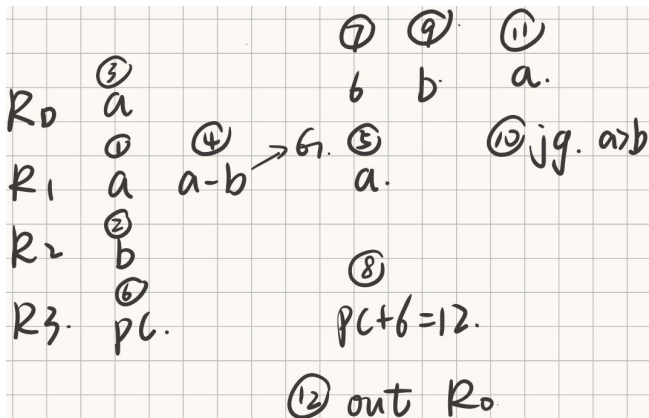 ⑦ ⑨ ⑪
③ 6 b. a.
R0 a
① ④ ⑤ ⑩ jg. a>b
R1 a a-b → G. a.
②
R2 b
⑥ ⑧
R3. PC. PC+6=12.
⑫ out R0